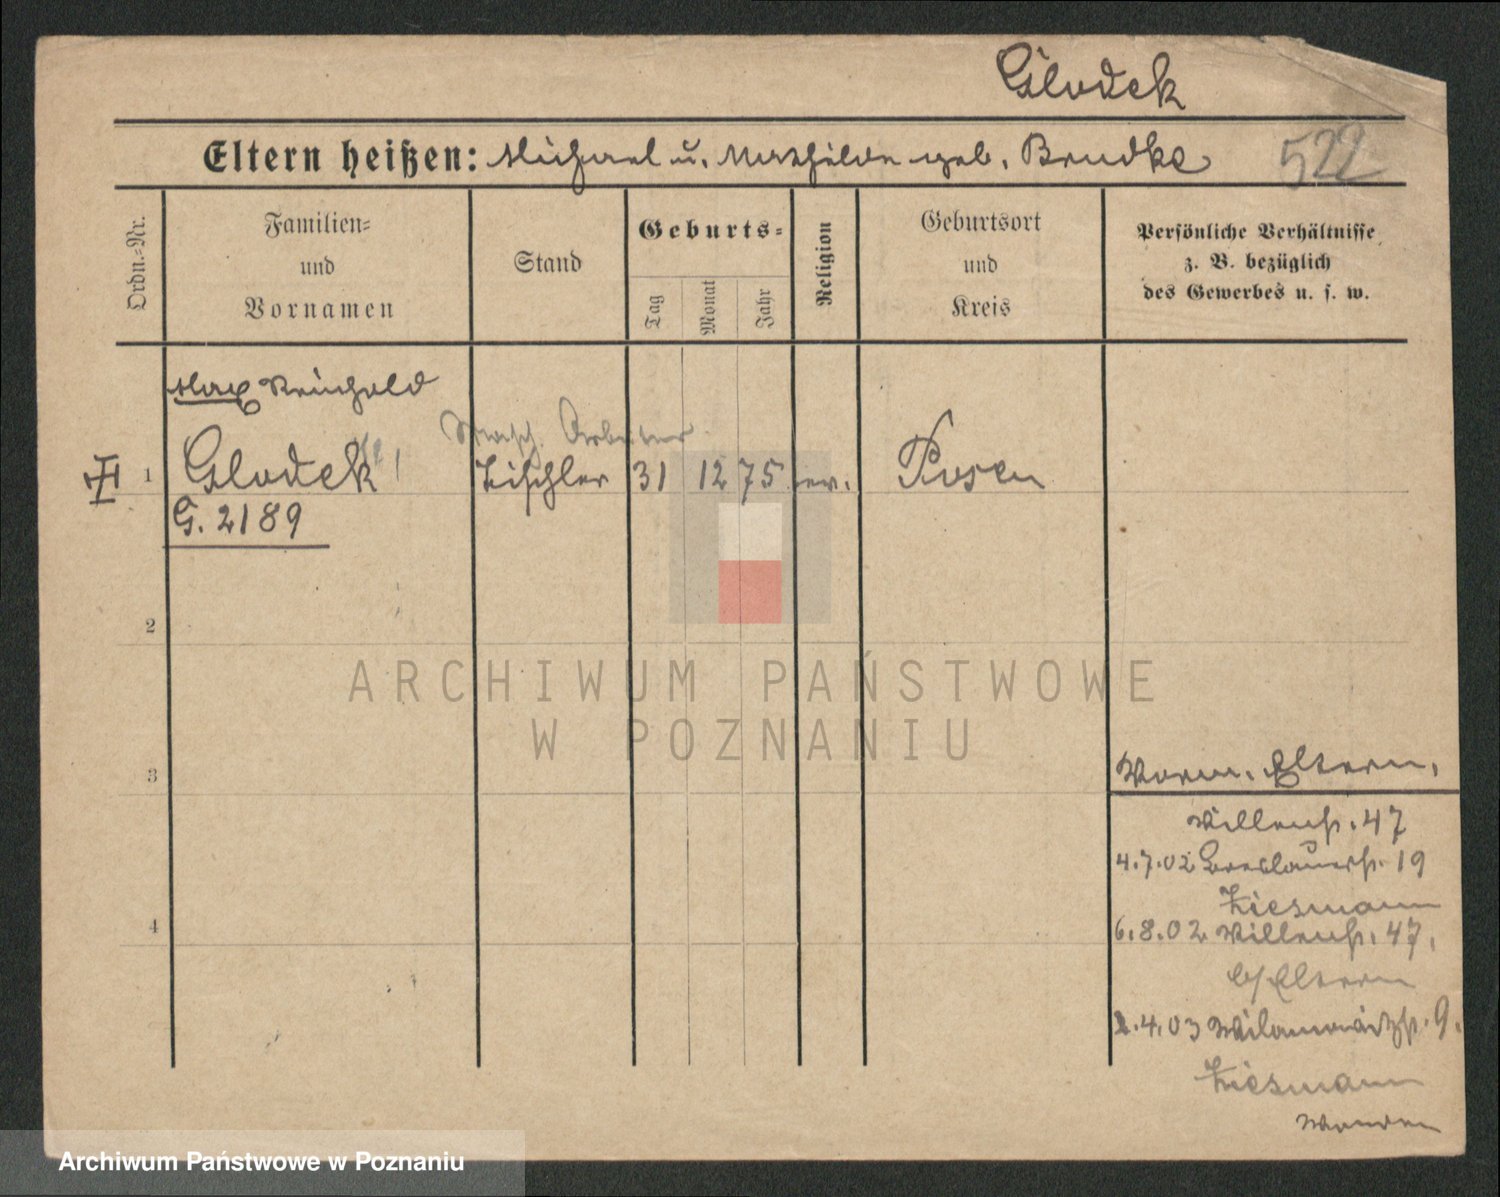 Glodek
Eltern heißen: Michael u. Mathilde geb. Brudke
522
Ordn.-Nr.
Familien-
und
Vornamen
Stand
Geburts-
Tag
Monat
Jahr
Religion
Geburtsort
und
Kreis
Persönliche Verhältnisse
z. B. bezüglich
des Gewerbes u. s. w.
Max Reinhold
Masch. Arbeiter
1 Glodek Tischler 31 12 75 ev. Posen
G. 2189
2
ARCHIWUM PAŃSTWOWE
W POZNANIU
3
Eltern.
47
4.7.02 Breslauerstr. 19
Tiesmann
6.8.02 47.
4
b/Eltern
2.4.03 9.
Tiesmann
Archiwum Państwowe w Poznaniu